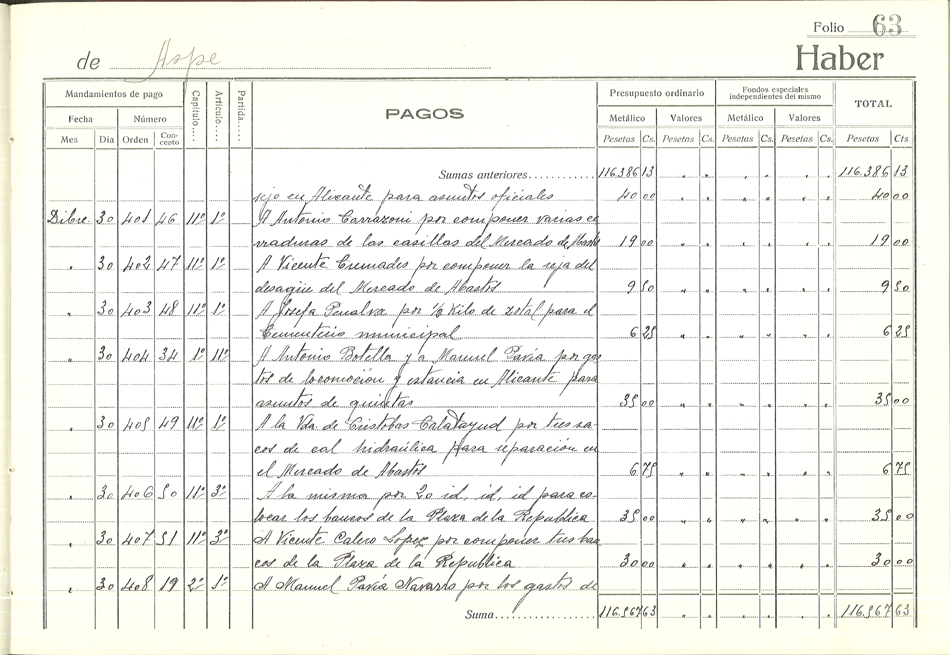 Folio 63
de Aspe Haber
Mandamientos de pago Capítulo.... Artículo.... Partida.... PAGOS Presupuesto ordinario Fondos especiales independientes del mismo TOTAL
Fecha Número Metálico Valores Metálico Valores
Mes Día Orden Concepto Pesetas Cs. Pesetas Cs. Pesetas Cs. Pesetas Cs. Pesetas Cts
Sumas anteriores............ 116.386 13 " " " " " " 116.386 13
sejo en Alicante para asuntos oficiales 40 00 " " " " " " 40 00
Dibre. 30 401 46 11º 1º A Antonio Carrazoni por componer varias ce
rraduras de las casillas del Mercado de Abastos 19 00 " " " " " " 19 00
" 30 402 47 11º 1º A Vicente Cremades por componer la reja del
desagüe del Mercado de Abastos 9 50 " " " " " " 9 50
" 30 403 48 11º 1º A Josefa Penalva por ½ Kilo de zotal para el
Cementerio municipal 6 25 " " " " " " 6 25
" 30 404 34 1º 11º A Antonio Botella y a Manuel Pavía por gas
tos de locomoción y estancia en Alicante para
asuntos de quintas 35 00 " " " " " " 35 00
" 30 405 49 11º 1º A la Vda. de Cristobas Calatayud por tres sa-
cos de cal hidraúlica para reparación en
el Mercado de Abastos 6 75 " " " " " " 6 75
" 30 406 50 11º 3º A la misma por 20 id, id, id para co-
locar los bancos de la Plaza de la Republica 35 00 " " " " " " 35 00
" 30 407 51 11º 3º A Vicente Calero Lopez por componer tres ban
cos de la Plaza de la Republica 30 00 " " " " " " 30 00
" 30 408 19 2º 1º A Manuel Pavía Navarro por los gastos de
Suma.................... 116.567 63 " " " " " " 116.567 63